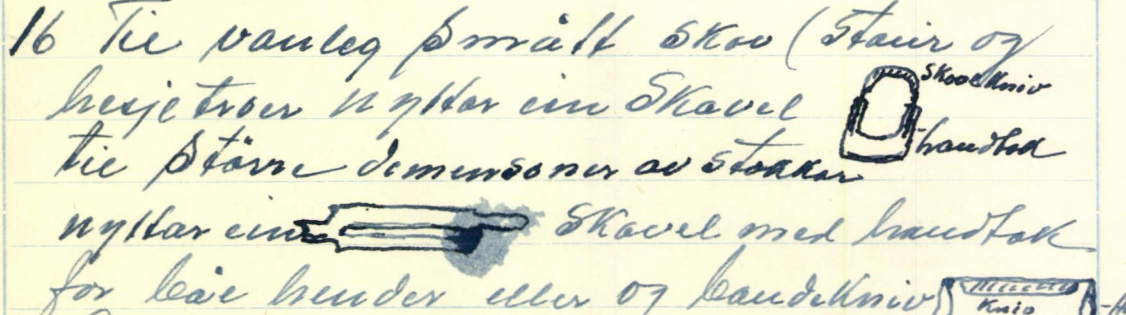 16 Tie vanleg smått skov (staur og
hesjetroer nyttar ein Skavel
Skavlekniv
handtak
tie större demensoner av stokkar
nyttar ein Skavel med handtak
for båe hender eller og bandekniv
Kniv